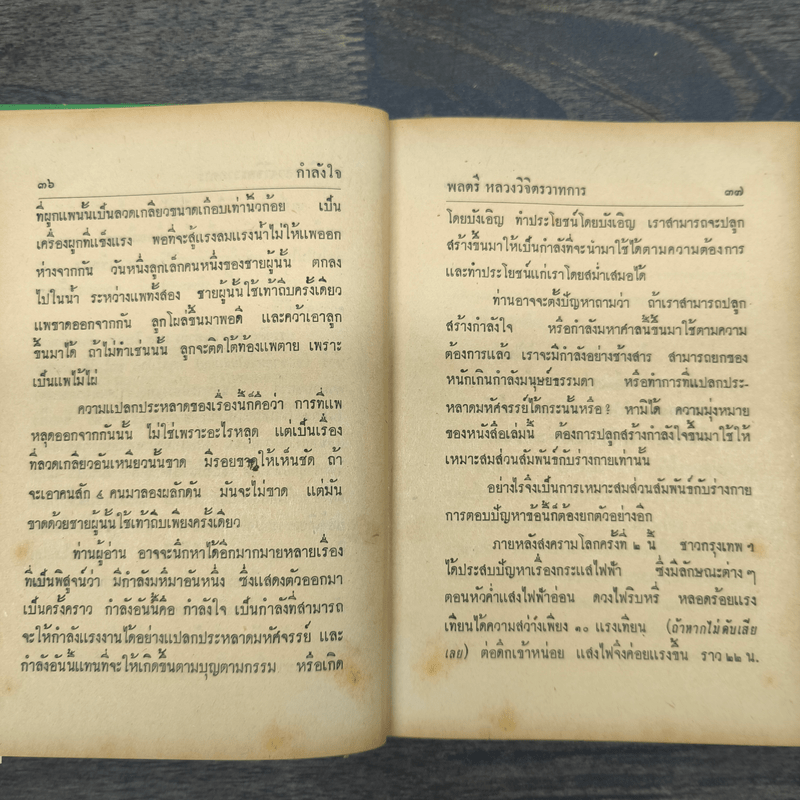 ๓๖ กำลังใจ
ที่ผูกแพนั้นเป็นลวดเกลียวขนาดเกือบเท่านิ้วก้อย เป็น
เครื่องผูกที่แข็งแรง พอที่จะสู้แรงลมแรงน้ำไม่ให้แพออก
ห่างจากกัน วันหนึ่งลูกเล็กคนหนึ่งของชายผู้นั้น ตกลง
ไปในน้ำ ระหว่างแพทั้งสอง ชายผู้นั้นใช้เท้าถีบครั้งเดียว
แพขาดออกจากกัน ลูกโผล่ขึ้นมาพอดี และคว้าเอาลูก
ขึ้นมาได้ ถ้าไม่ทำเช่นนั้น ลูกจะติดใต้ท้องแพตาย เพราะ
เป็นแพไม้ไผ่
ความแปลกประหลาดของเรื่องนี้ก็คือว่า การที่แพ
หลุดออกจากกันนั้น ไม่ใช่เพราะอะไรหลุด แต่เป็นเรื่อง
ที่ลวดเกลียวอันเหนียวนั้นขาด มีรอยขาดให้เห็นชัด ถ้า
จะเอาคนสัก ๔ คนมาลองผลักดัน มันจะไม่ขาด แต่มัน
ขาดด้วยชายผู้นั้นใช้เท้าถีบเพียงครั้งเดียว
ท่านผู้อ่าน อาจจะนึกหาได้อีกมากมายหลายเรื่อง
ที่เป็นพิสูจน์ว่า มีกำลังมหึมาอันหนึ่ง ซึ่งแสดงตัวออกมา
เป็นครั้งคราว กำลังอันนี้คือ กำลังใจ เป็นกำลังที่สามารถ
จะให้กำลังแรงงานได้อย่างแปลกประหลาดมหัศจรรย์ และ
กำลังอันนี้แทนที่จะให้เกิดขึ้นตามบุญตามกรรม หรือเกิด
พลตรี หลวงวิจิตรวาทการ ๓๗
โดยบังเอิญ ทำประโยชน์โดยบังเอิญ เราสามารถจะปลูก
สร้างขึ้นมาให้เป็นกำลังที่จะนำมาใช้ได้ตามความต้องการ
และทำประโยชน์แก่เราโดยสม่ำเสมอได้
ท่านอาจจะตั้งปัญหาถามว่า ถ้าเราสามารถปลูก
สร้างกำลังใจ หรือกำลังมหาศาลนี้ขึ้นมาใช้ตามความ
ต้องการแล้ว เราจะมีกำลังอย่างช้างสาร สามารถยกของ
หนักเกินกำลังมนุษย์ธรรมดา หรือทำการที่แปลกประ-
หลาดมหัศจรรย์ได้กระนั้นหรือ? หามิได้ ความมุ่งหมาย
ของหนังสือเล่มนี้ ต้องการปลูกสร้างกำลังใจขึ้นมาใช้ให้
เหมาะสมส่วนสัมพันธ์กับร่างกายเท่านั้น
อย่างไรจึงเป็นการเหมาะสมส่วนสัมพันธ์กับร่างกาย
การตอบปัญหาข้อนี้ก็ต้องยกตัวอย่างอีก
ภายหลังสงครามโลกครั้งที่ ๒ นี้ ชาวกรุงเทพ ฯ
ได้ประสบปัญหาเรื่องกระแสไฟฟ้า ซึ่งมีลักษณะต่าง ๆ
ตอนหัวค่ำแสงไฟฟ้าอ่อน ดวงไฟริบหรี่ หลอดร้อยแรง
เทียนได้ความสว่างเพียง ๑๐ แรงเทียน (ถ้าหากไม่ดับเสีย
เลย) ต่อดึกเข้าหน่อย แสงไฟจึงค่อยแรงขึ้น ราว ๒๒ น.